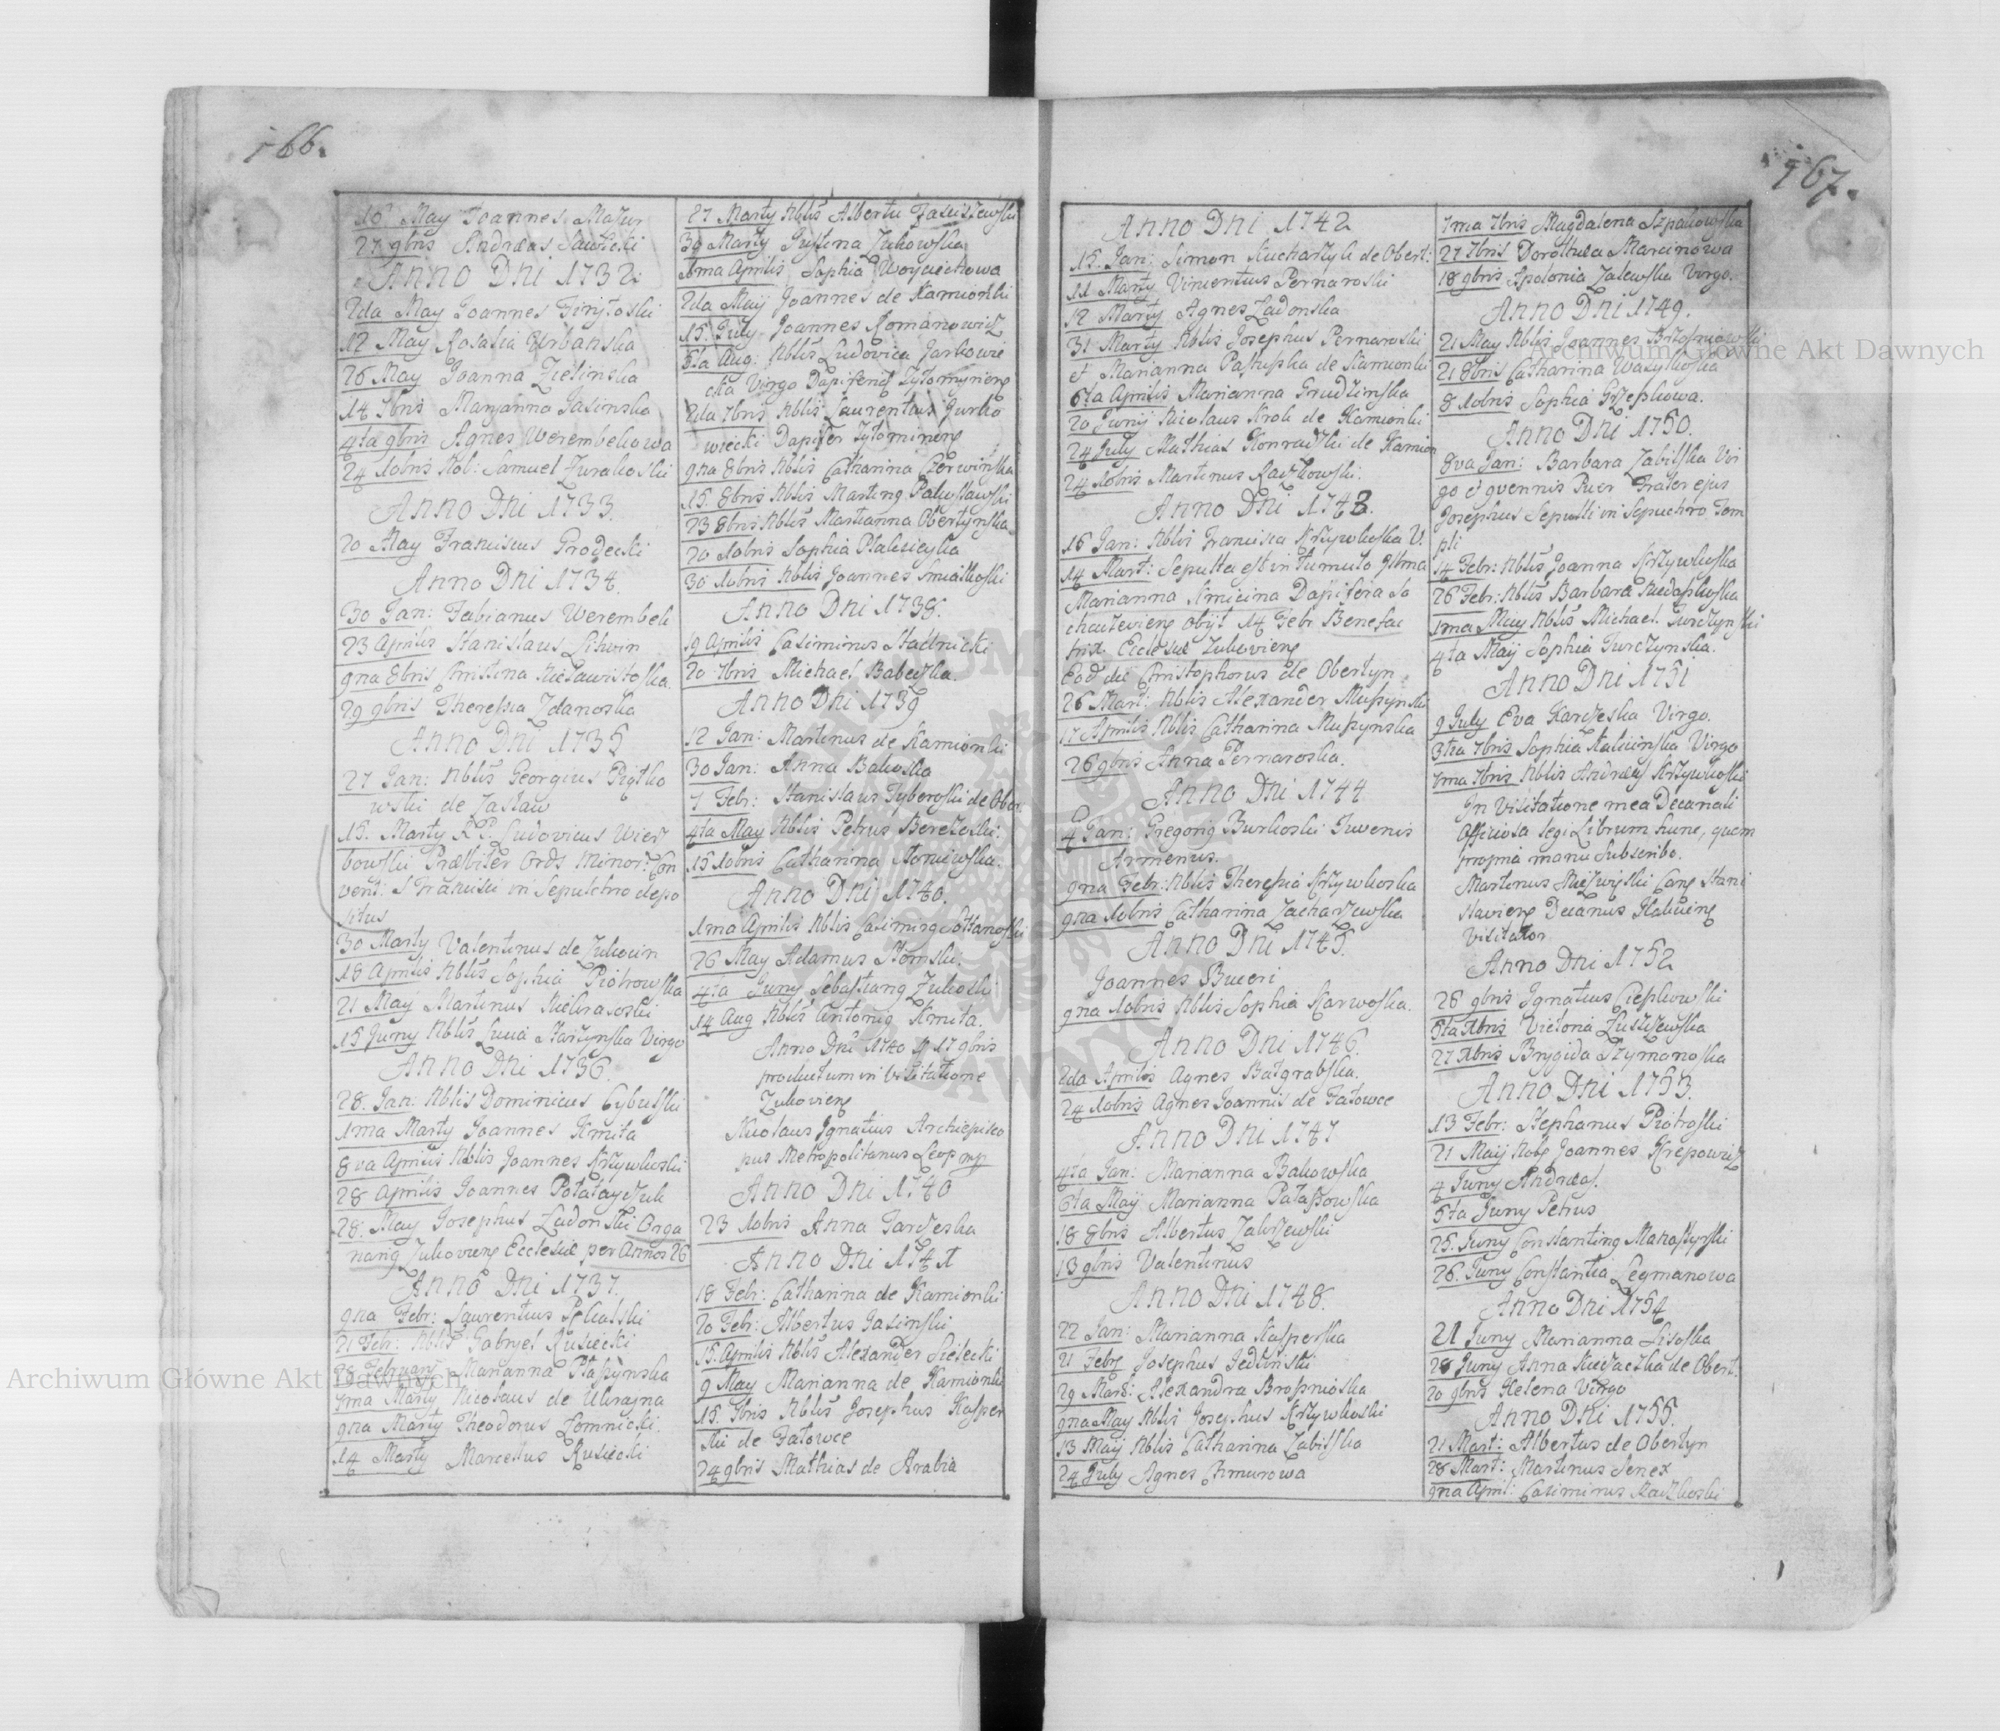 166.
10 May Joannes Mazur
27 9bris Andreas Sawicki
Anno Dni 1732
2da May Joannes Firytoski
12 May Rosalia Urbanska
26 May Joanna Zielinska
14 7bris Maryanna Jasinska
4ta 9bris Agnes Werembekowa
24 10bris Nob: Samuel Zurakoski
Anno Dni 1733.
20 May Franciscus Grodecki
Anno Dni 1734.
30 Jan: Fabianus Werembek
23 Aprilis Stanislaus Litwin
9na 8bris Cristina
29 9bris Theressia Zdanoska
Anno Dni 1735
27 Jan: Nblis Georgius Piątko
wski de Zasław
15. Marty R.P. Ludovicus Wierz
bowski Præbiter Ords Minor: Con
vent: S Francisci in Sepulchro depo
situs
30 Marty Valentinus de Zukocin
18 Aprilis Nblis Sophia Piotrowska
21 May Martinus
15 Juny Nblis Lucia Starzynska Virgo
Anno Dni 1736.
28. Jan: Nblis Dominicus Cybulski
1ma Marty Joannes Kmita
8va Aprilis Nblis Joannes Krzywkoski
28 Aprilis Joannes
28. May Josephus Ladonski Orga
narius Zukoviens Ecclesiæ per Annos 26
Anno Dni 1737.
9na Febr: Laurentius Pękalski
21 Febr: Nblis Gabryel Rusiecki
28 February Marianna Ptaszynska
7ma Marty Nicolaus de Ukrayna
9na Marty Theodorus Łomnicki.
14 Marty Marcellus Rusiecki
27 Marty Nblis Albertu Jasiszewski
30 Marty Justina Zukowska
1ma Aprilis Sophia Woyciechowa
2da Maij Joannes de Kamionki
15. July Joannes Romanowicz
6ta Aug: Nblis Ludovica Jurkowie
cka Virgo Dapiferis Zytomyriens
2da 7bris Nblis Laurentius Jurko
wiecki Dapifer Zytomiriens
9na 8bris Nblis Catharina Czerwinska
15 8bris Nblis Martinus Pawławski
23 8bris Nblis Marianna Obertynska
20 10bris Sophia
30 10bris Nblis Joannes Smiałkoski
Anno Dni 1738.
19 Aprilis Casimirus Stadnicki
20 7bris Michael Babeczka.
Anno Dni 1739
12 Jan: Martinus de Kamionki
30 Jan: Anna Bakoska
7 Febr: Stanislaus Tyberoski de Ober
4ta May Nblis Petrus Berezecki.
15 10bris Catharina
Anno Dni 1740.
1ma Aprilis Nblis Casimirus
26 May Adamus Słomski.
4ta Juny Sebastianus Zukoski
14 Aug Nblis Antonius Kmita.
Anno Dni 1740 D 17 9bris
productum in Visitatione
Zukoviens
Nicolaus Ignatius Archiepisco
pus Metropolitanus Leop mp
Anno Dni 1740
23 10bris Anna Garczeska
Anno Dni 1741
18 Febr: Catharina de Kamionki
20 Febr: Albertus Jasinski
15. Aprilis Nblis Alexander Sielecki
9 May Marianna de Kamionki
15. 7bris Nblis Josephus Kasper
ski de Jałowce
24 9bris Mathias de Arabia
167.
Anno Dni 1742
15. Jan: Simon Kucharzyk de Obert:
11 Marty Vincentius Pernaroski
12 Marty Agnes Ladonska
31 Marty Nblis Josephus Pernaroski
et Marianna Pastuska de Kamionki
6ta Aprilis Marianna Grudzinska
20 Junij Nicolaus Krok de Kamionki
24 July Mathias Konradzki de Kamion
24 10bris Martinus Raczkowski.
Anno Dni 1743.
16 Jan: Nblis Francisca Krzywkoska V.
14 Mart: Sepulta est in tumulo Illma
Marianna Kmicina Dapifera So
chaczeviens obijt 14 Febr Benefac
trix Ecclesiæ Zukoviens
Eod die Christophorus de Obertyn
26 Mart: Nblis Alexander Muszynski
17 Aprilis Nblis Catharina Muszynska
26 9bris Anna Pernaroska.
Anno Dni 1744
4 Jan: Gregorius Burkoski Juvenis
Armenus.
9na Febr: Nblis Theressia Krzywkoska
9na 10bris Catharina Zacharzewska
Anno Dni 1745.
Joannes Buceri
9na 10bris Nblis Sophia Karwoska.
Anno Dni 1746.
2da Aprilis Agnes Bazgrabska.
24 10bris Agnes Joannis de Jałowce
Anno Dni 1747
4ta Jan: Marianna Bakowska
6ta Maij Marianna Pałaszowska
18 8bris Albertus Zakrzewski
13 9bris Valentinus
Anno Dni 1748.
22 Jan: Marianna Kasperska
21 Febr Josephus Jedliński
29 Mart: Alexandra Broszniowska
9na May Nblis Josephus Krzywkoski
13 Maij Nblis Catharina Zabilska
24 July Agnes Zmurowa
7ma 7bris Magdalena Szpakowska
27 7bris Dorothea Marcinowa
18 9bris Apolonia Zalewska Virgo.
Anno Dni 1749.
21 May Nblis Joannes
21 8bris Catharina Wasylkoska
8 10bris Sophia Grzeskowa.
Anno Dni 1750.
8va Jan: Barbara Zabilska Vir
go & quennis Puer Frater ejus
Josephus Sepulti in Sepuchro Tem
pli
14 Febr: Nblis Joanna Krzywkoska
26 Febr: Nblis Barbara
1ma May Nblis Michael Turczynski
4ta Maij Sophia Turczynska.
Anno Dni 1751
9 July Eva Karczeska Virgo.
3tia 7bris Sophia Kalicińska Virgo
7ma 7bris Nblis Andreas Krzywkoski
In Visitatione mea Decanali
Officiosa legi Librum hunc, quem
propria manu Subscribo.
Martinus Canc Stani
slaviens Decanus Haliciens
Visitator
Anno Dni 1752
26 9bris Ignatius Cieplowski
5ta Xbris Victoria Łuszczewska
27 Xbris Brygida Szymanoska
Anno Dni 1753.
13 Febr: Stephanus Piotroski
21 Maij Nobs Joannes Krepowicz
4 Juny Andreas.
5ta Juny Petrus
25. Juny Constantius Manastyrski
26. Juny Constantia Legmanowa
Anno Dni 1754
21 Juny Marianna Lisoska
28 Juny Anna de Obert.
20 9bris Helena Virgo
Anno Dni 1755.
21 Mart: Albertus de Obertyn
28 Mart: Martinus Senex
9na April: Casimirus Raczkoski
Archiwum Główne Akt Dawnych
Archiwum Główne Akt Dawnych